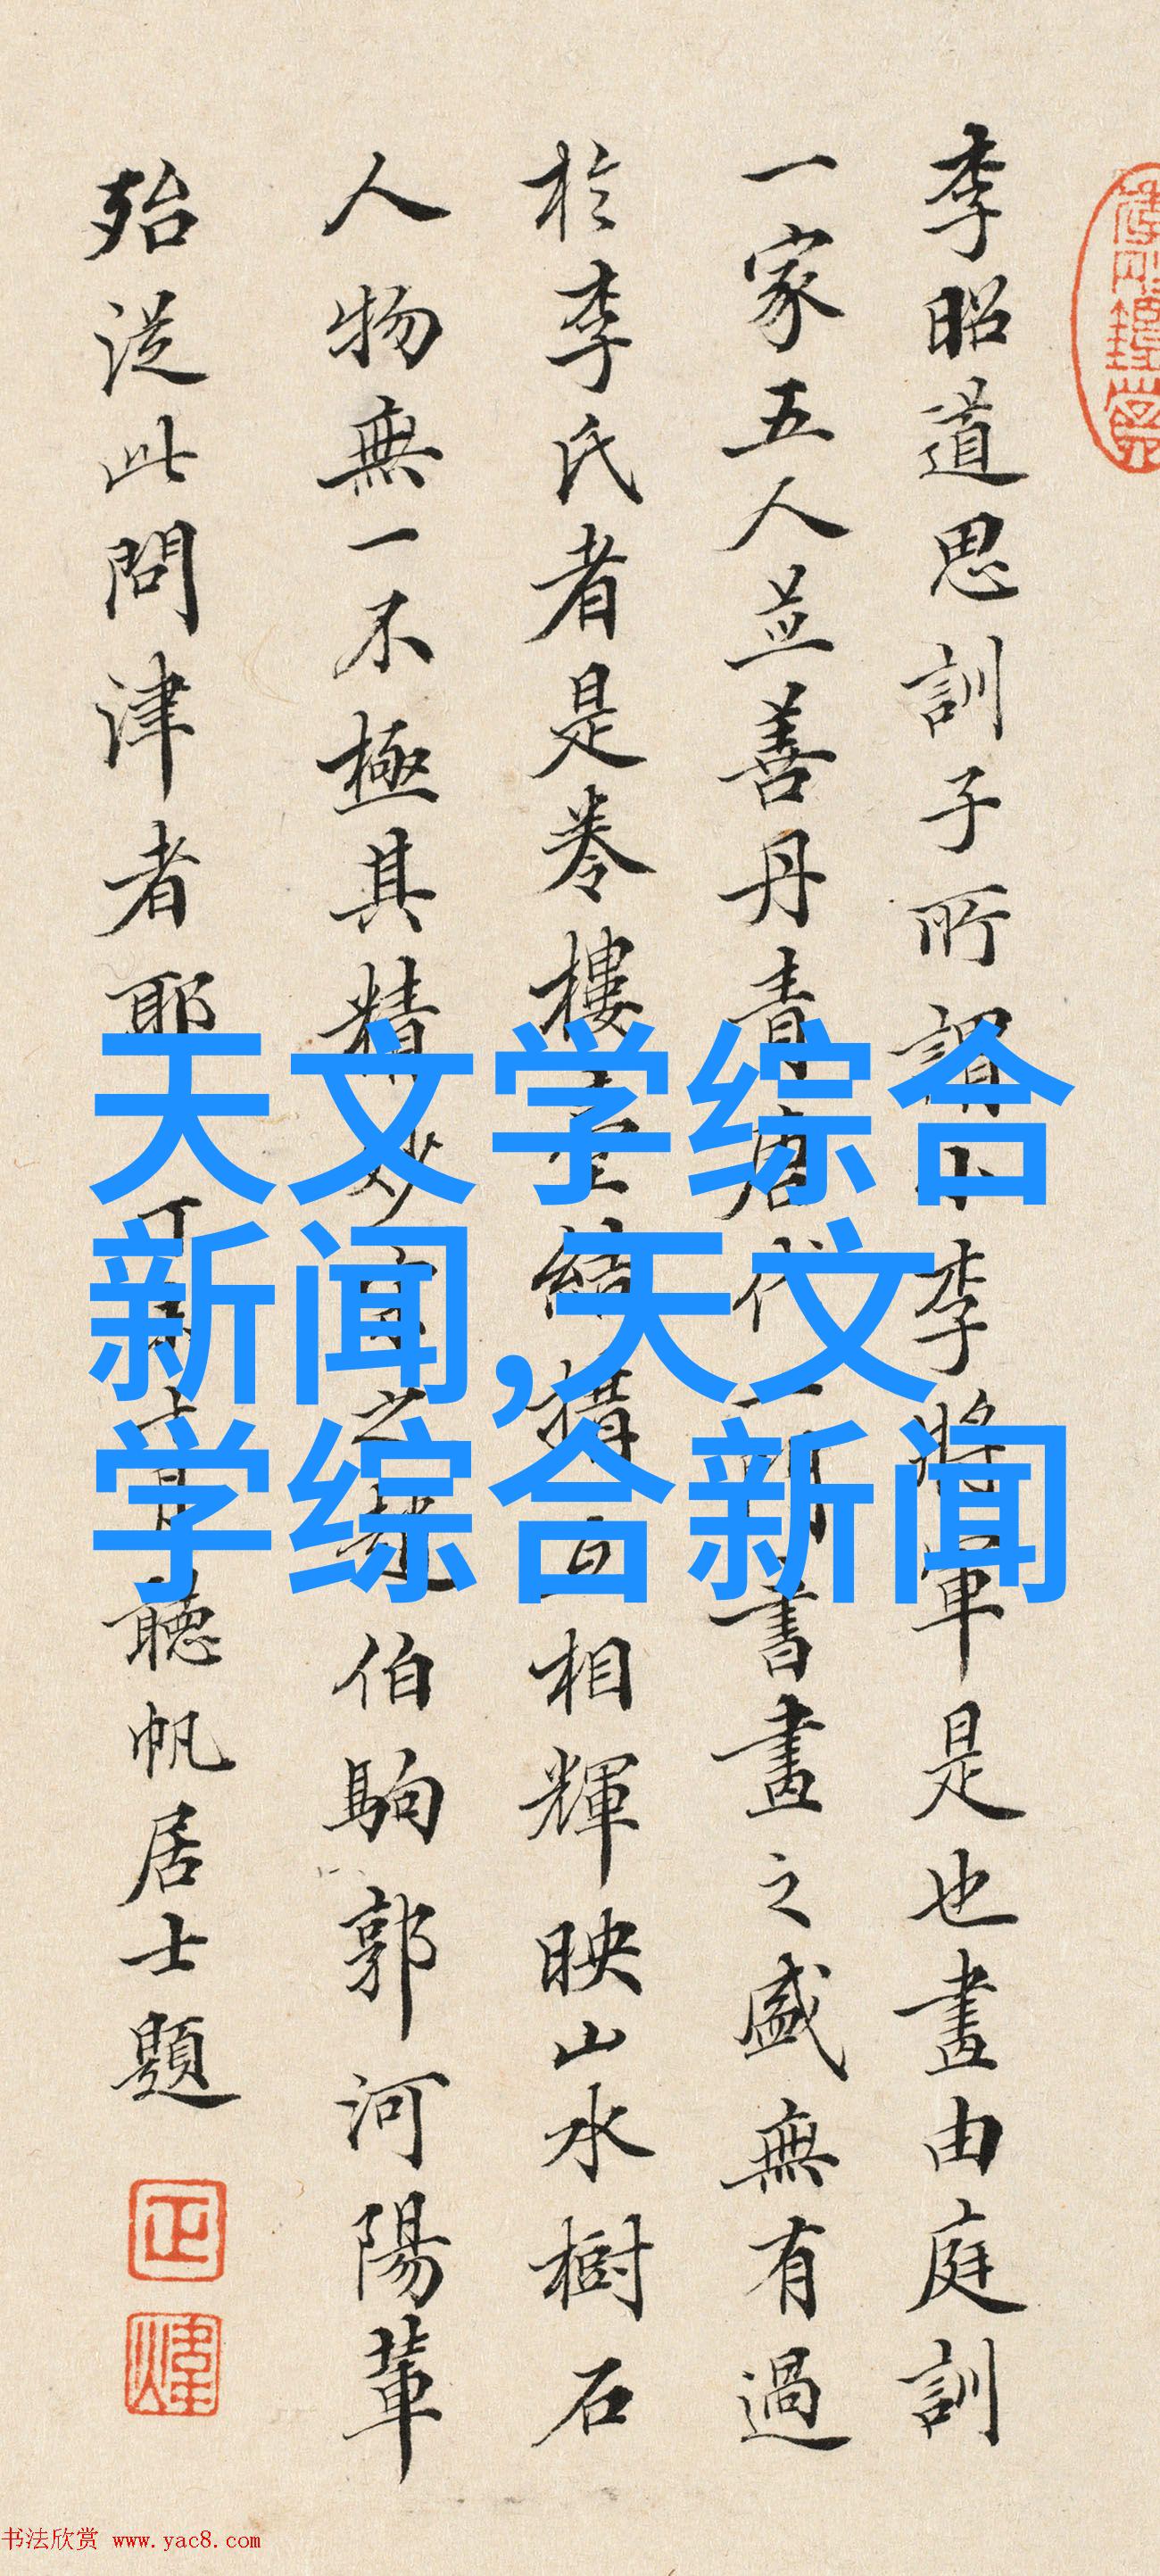 李昭道思訓子所謂小李將軍是也畫由庭訓
一家五人並善丹青唐代 書畫之盛無有過
於李氏者是卷樓臺結構 相輝映山水樹石
人物無一不極其精妙 之趙伯駒郭河陽輩
殆從此問津者耶丁 聽帆居士題
天文学综合
新闻,天文
学综合新闻
正
煒
书法欣赏 www.yac8.com